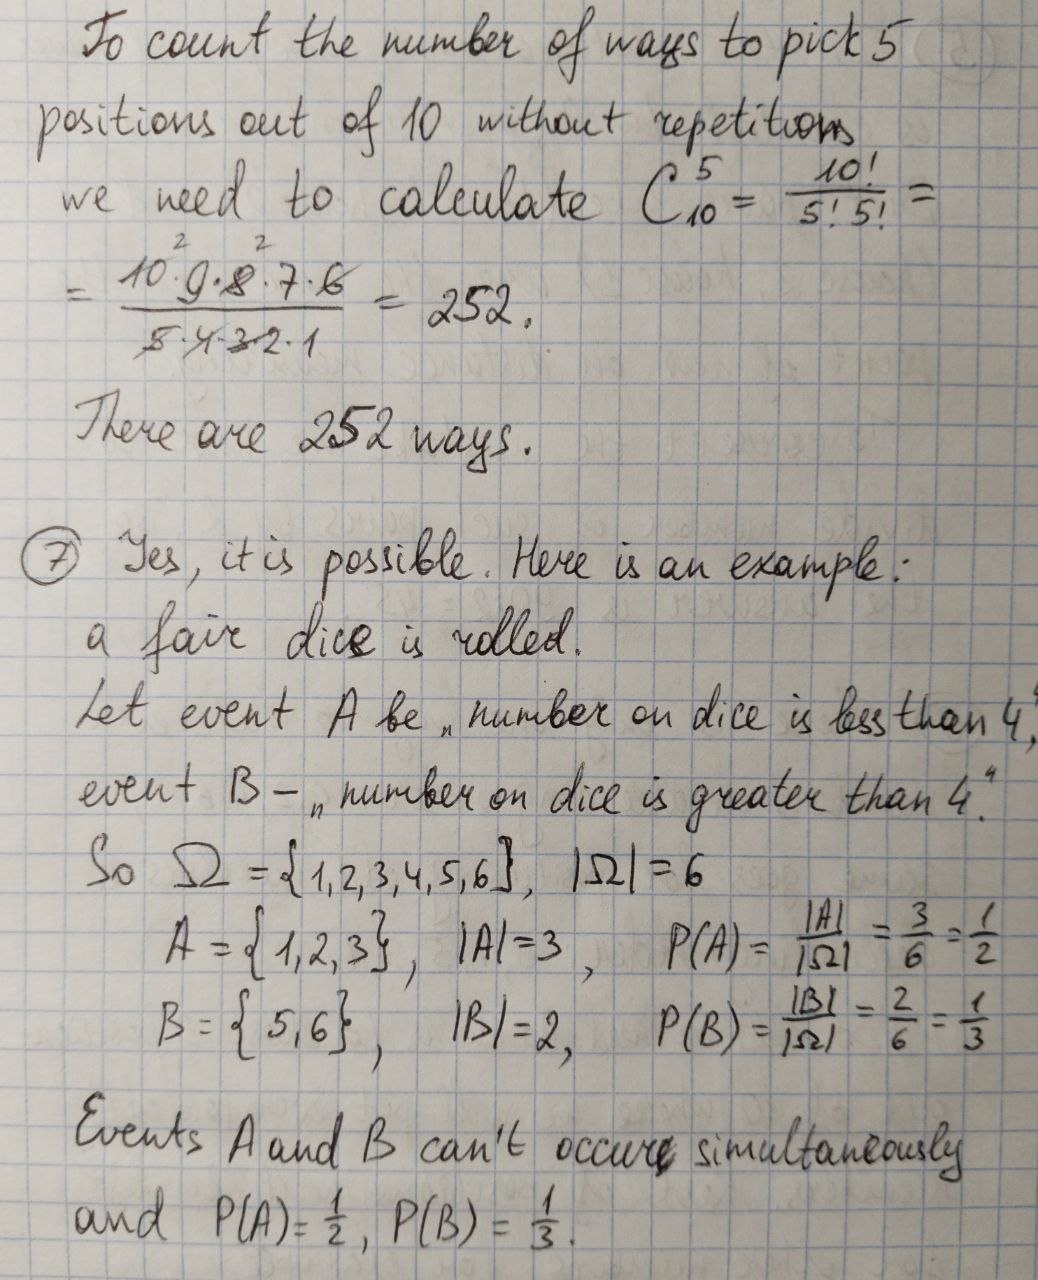 To count the number of ways to pick 5
positions out of 10 without repetitions
we need to calculate C₁₀⁵ = 10!/(5! 5!) =
= (10² · 9 · 8² · 7 · 6)/(5 · 4 · 3 · 2 · 1) = 252.
There are 252 ways.
⑦ Yes, it is possible. Here is an example:
a fair dice is rolled.
Let event A be „number on dice is less than 4“,
event B – „number on dice is greater than 4“.
So Ω = {1,2,3,4,5,6}, |Ω| = 6
A = {1,2,3}, |A| = 3, P(A) = |A|/|Ω| = 3/6 = 1/2
B = {5,6}, |B| = 2, P(B) = |B|/|Ω| = 2/6 = 1/3
Events A and B can't occure simultaneously
and P(A) = 1/2, P(B) = 1/3.